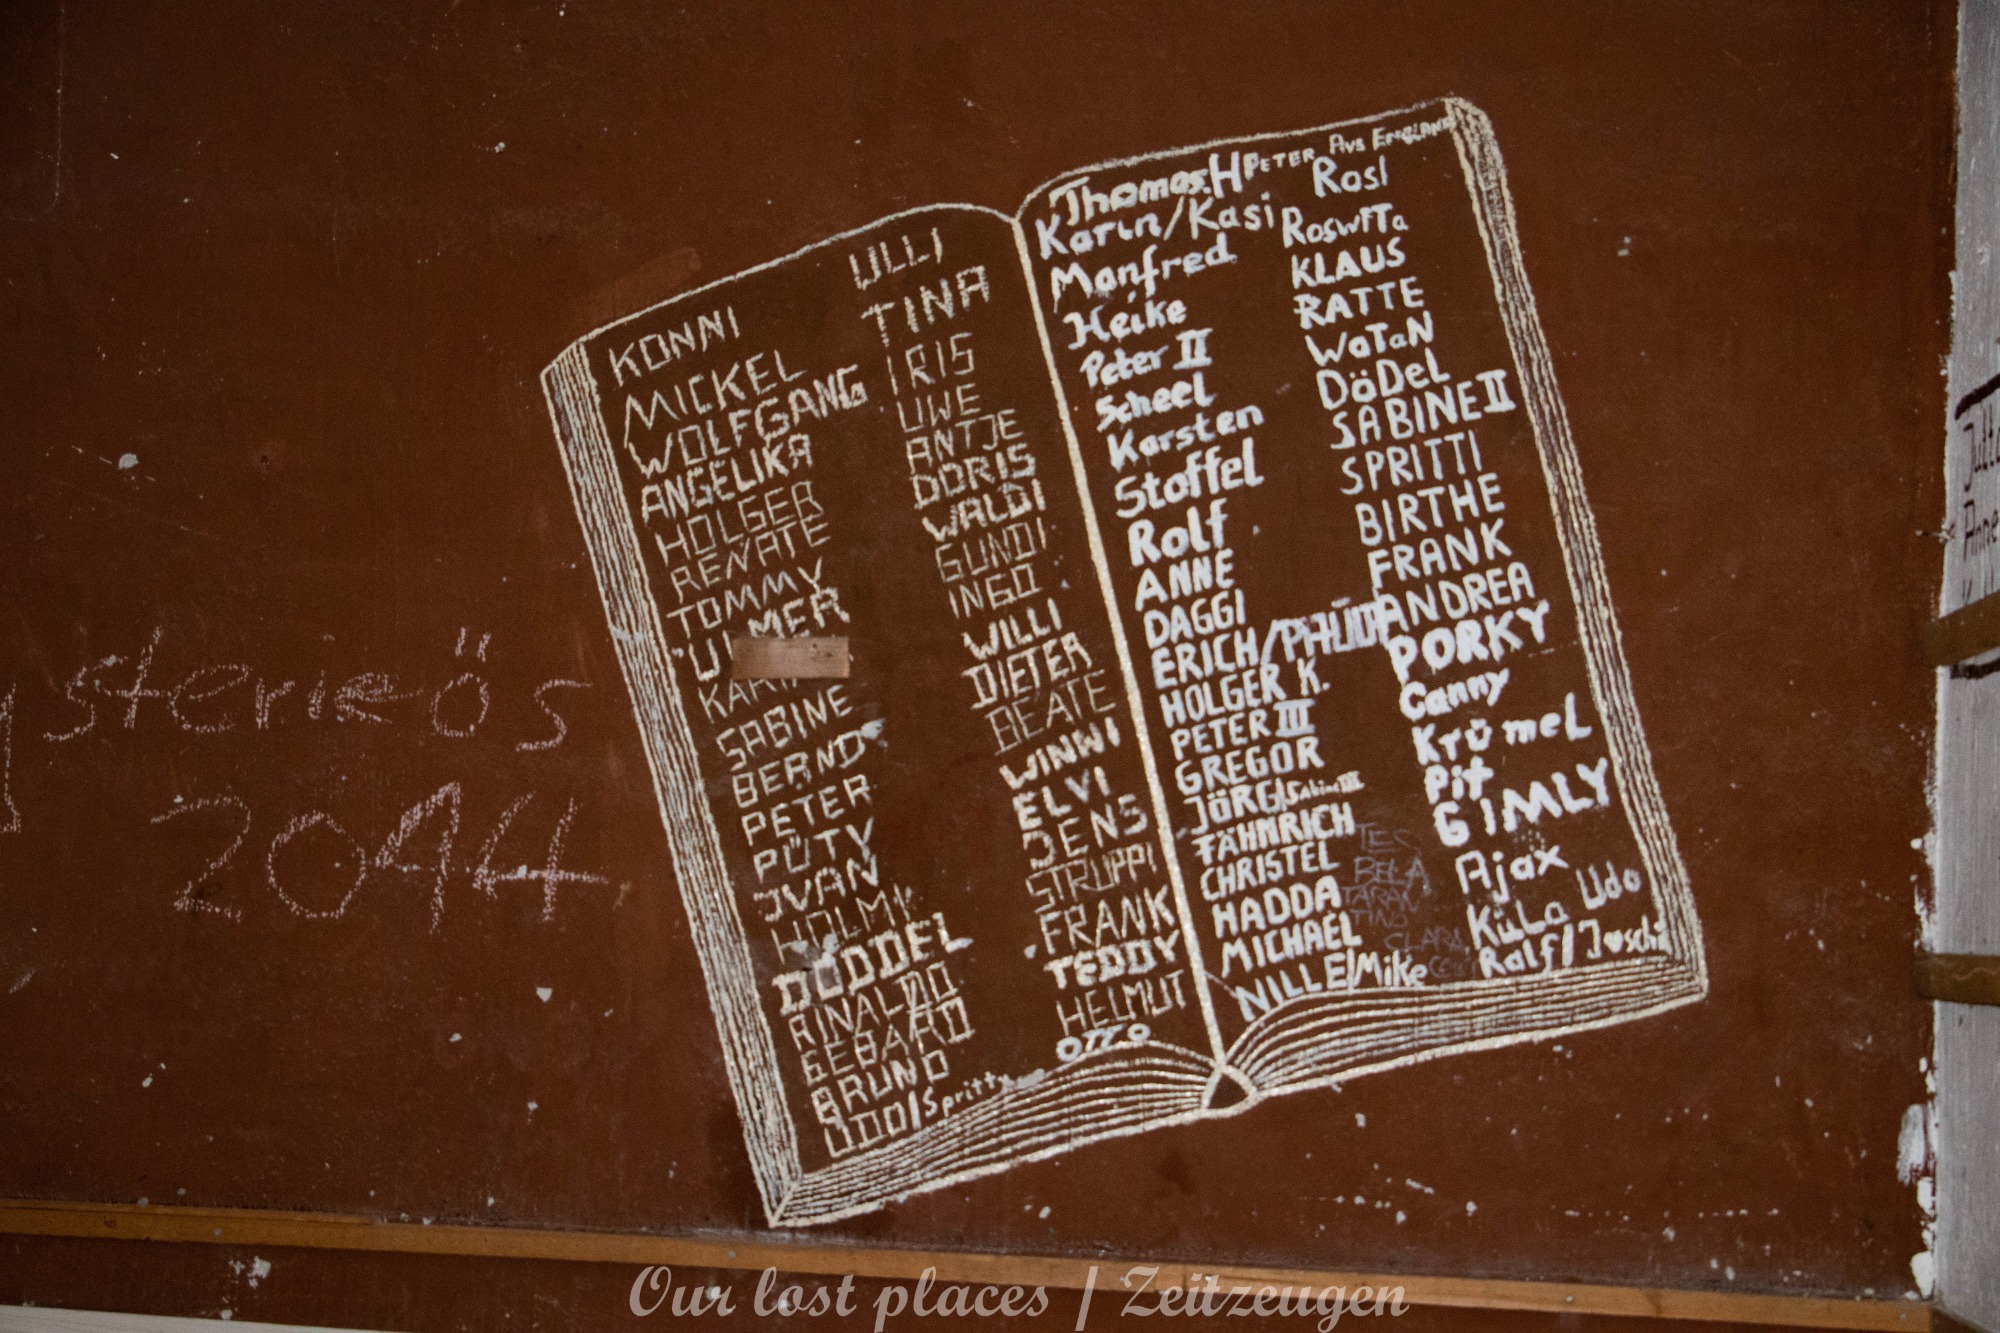 ysterieös
2044
KONNI
MICKEL
WOLFGANG
ANGELIKA
HOLGER
RENATE
TOMMY
ULMER
SABINE
BERND
PETER
PÜTY
JVAN
HOLMI
DÖDDEL
RINALDO
GEBARD
BRUNO
UDO/Spritty
ULLI
TINA
IRIS
UWE
ANTJE
DORIS
WALDI
GUNDI
INGO
WILLI
DIETER
BEATE
WINWI
ELVI
JENS
STRUPPI
FRANK
TEDDY
HELMUT
OTTO
Thomas.H PETER AUS ENGLAND
Karin/Kasi
Manfred
Heike
Peter II
Scheel
Karsten
Stoffel
Rolf
ANNE
DAGGI
ERICH/
HOLGER K.
PETER III
GREGOR
JÖRG/Sabine III
FÄHNRICH
CHRISTEL
HADDA
MICHAEL
NILLE/Mike
Rosl
RoswiTa
KLAUS
RATTE
WaTaN
DöDel
SABINE II
SPRITTI
BIRTHE
FRANK
ANDREA
PORKY
Canny
KrümeL
Pit
GIMLY
Ajax
KüLa Udo
Ralf/Joschi
BELA
TARAN
TINO
CLARA
Our lost places / Zeitzeugen